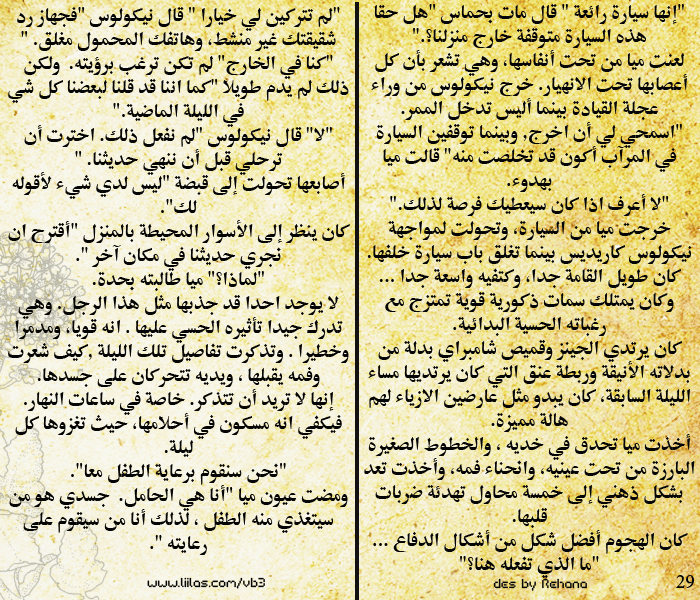 "إنها سيارة رائعة " قال مات بحماس "هل حقا
هذه السيارة متوقفة خارج منزلنا؟."
لعنت ميا من تحت أنفاسها، وهي تشعر بأن كل
أعصابها تحت الانهيار. خرج نيكولوس من وراء
عجلة القيادة بينما أليس تدخل الممر.
"اسمحي لي أن اخرج, وبينما توقفين السيارة
في المرآب أكون قد تخلصت منه" قالت ميا
بهدوء.
"لا أعرف اذا كان سيعطيك فرصة لذلك."
خرجت ميا من السيارة، وتحولت لمواجهة
نيكولوس كاريديس بينما تغلق باب سيارة خلفها.
كان طويل القامة جدا، وكتفيه واسعة جدا ...
وكان يمتلك سمات ذكورية قوية تمتزج مع
رغباته الحسية البدائية.
كان يرتدي الجينز وقميص شامبراي بدلة من
بدلاته الأنيقة وربطة عنق التي كان يرتديها مساء
الليلة السابقة، كان يبدو مثل عارضين الازياء لهم
هالة مميزة.
أخذت ميا تحدق في خديه ، والخطوط الصغيرة
البارزة من تحت عينيه، وانحناء فمه، وأخذت تعد
بشكل ذهني إلى خمسة محاول تهدئة ضربات
قلبها.
كان الهجوم أفضل شكل من أشكال الدفاع ...
"ما الذي تفعله هنا؟"
des by Rehana
29
"لم تتركين لي خيارا " قال نيكولوس "فجهاز رد
شقيقتك غير منشط، وهاتفك المحمول مغلق. "
"كنا في الخارج" لم تكن ترغب برؤيته. ولكن
ذلك لم يدم طويلاً "كما اننا قد قلنا لبعضنا كل شي
في الليلة الماضية."
"لا" قال نيكولوس "لم نفعل ذلك. اخترت أن
ترحلي قبل أن ننهي حديثنا. "
أصابعها تحولت إلى قبضة "ليس لدي شيء لأقوله
لك".
كان ينظر إلى الأسوار المحيطة بالمنزل "أقترح ان
نجري حديثنا في مكان آخر ".
"لماذا؟" ميا طالبته بحدة.
لا يوجد احدا قد جذبها مثل هذا الرجل. وهي
تدرك جيدا تأثيره الحسي عليها . انه قويا، ومدمرا
وخطيرا . وتذكرت تفاصيل تلك الليلة ,كيف شعرت
وفمه يقبلها ، ويديه تتحركان على جسدها.
إنها لا تريد أن تتذكر. خاصة في ساعات النهار.
فيكفي انه مسكون في أحلامها، حيث تغزوها كل
ليلة.
"نحن سنقوم برعاية الطفل معا".
ومضت عيون ميا "أنا هي الحامل. جسدي هو من
سيتغذي منه الطفل ، لذلك أنا من سيقوم على
رعايته ".
www.liilas.com/vb3